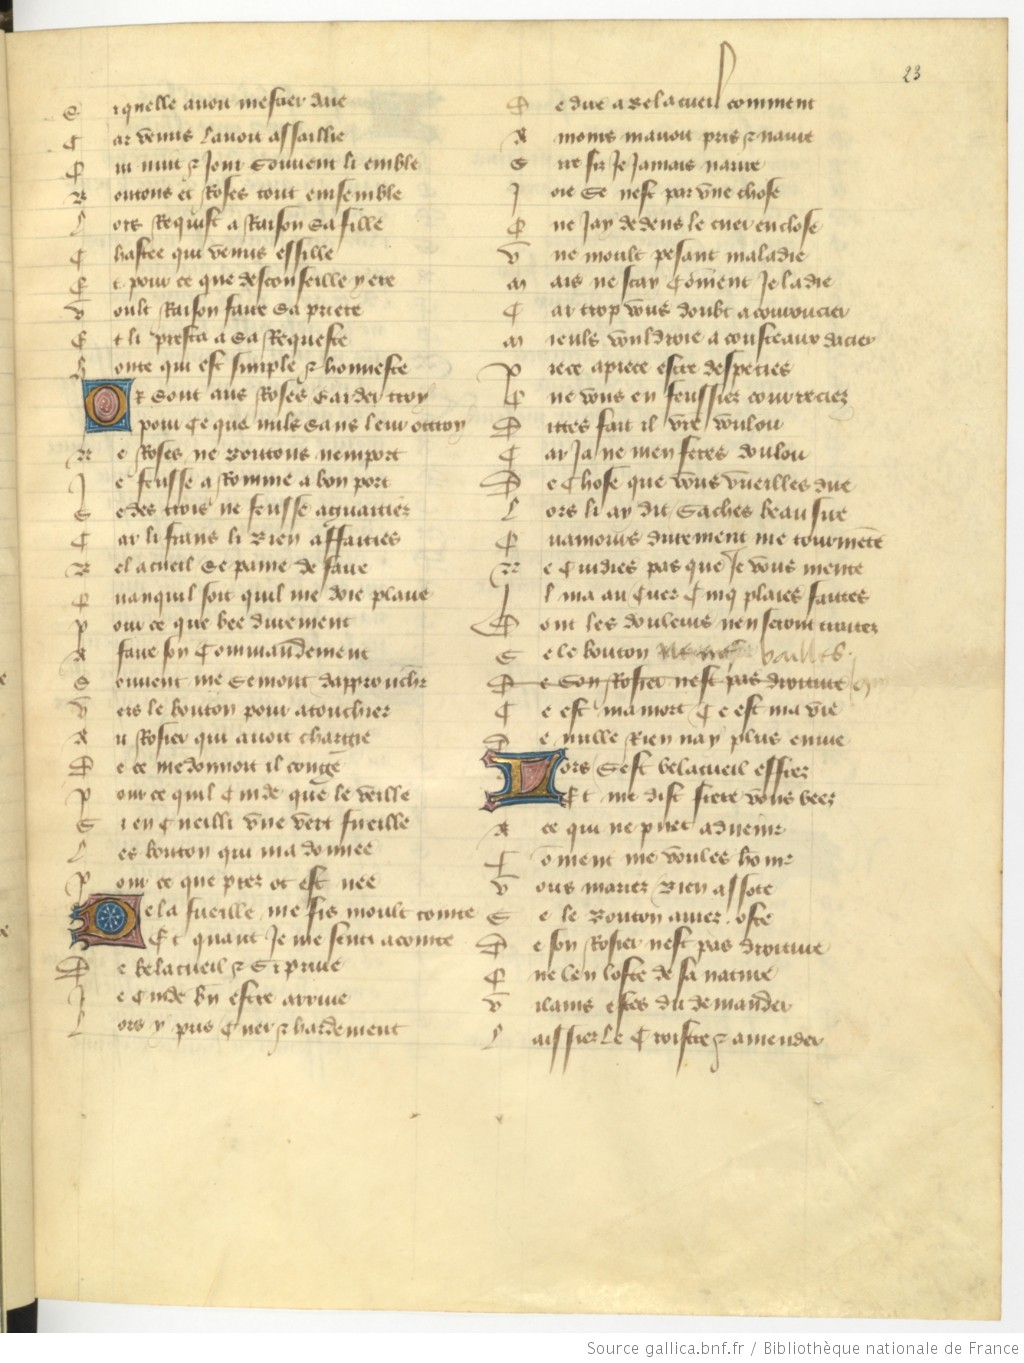 23
S iquelle auoit mestier daie
C ar venus lauoit assaillie
Q ui nuit & jour souuent li emble
B outons et Roses tout ensemble
L ors Requist a Raison sa fille
C hastee qui venus essille
E t pour ce que desconseillyere
V oult Raison faire sa priere
E t li presta a sa Requeste
H onte qui est simple & honneste
OR sont aus Roses garder troy
pour ce que nuls sans leur ottroy
N e Roses ne boutons nemport
J e feusse a Romme a bon port
S e des trois ne feusse aguaitier
C ar li frans li bien affaities
B el acueil se paine de faire
Q uanquil soit quil me doie plaire
P our ce que bee durement
A faire son commandement
S ouuent me semont dapprouchir
V ers le bouton pour atouchier
A u Rosier qui auoit chargie
D e ce me donnoit il conge
P our ce quil cuide que le veille
S i en cueilli vne vert fueille
L es bouton qui ma donnee
P our ce que pres ot est nee
De la fueille me fis moult cointe
Et quant Je me senti acointe
D e belacueil & si priue
J e cuide bn estre arriue
L ors y pris cuer & hardement
D e dire a Belacueil comment
A mours mauoit pris & naure
S ire fis Je jamais naure
J oie se nest par vne chose
Q ue Jay dedens le cuer enclose
V ne moult pesant maladie
M ais ne scay coment Je la die
C ar trop vous doubt a courroucier
M ieuls vouldroie a cousteaux dacier
P iece a piece estre despecies
Q ue vous en feussier courreciez
D ittes fait il vre voulou
C ar Ja ne men feres doulou
D e chose que vous vueilles dire
L ors li ay dit saches beau sire
Q uamours durement me tourmete
N e cuidies pas que Je vous mente
J l ma au cuer cinq plaies faites
D ont les douleurs nen seront traites
S e le bouton bailles
D e son Rosier nest pas droiture
C e est ma mort ce est ma vie
D e nulle Rien nay plus enuie
Lors sest belacueil effier
Et me dist frere vous beer
A ce qui ne puet aduenir
C oment me voules honir
V ous mariez bien assote
S e le Bouton auier oste
D e son Rosier nest pas droiture
Q ue len loste de sa nature
V ilains estes du demander
L aissier le croistre & amender
Source gallica.bnf.fr / Bibliothèque nationale de France